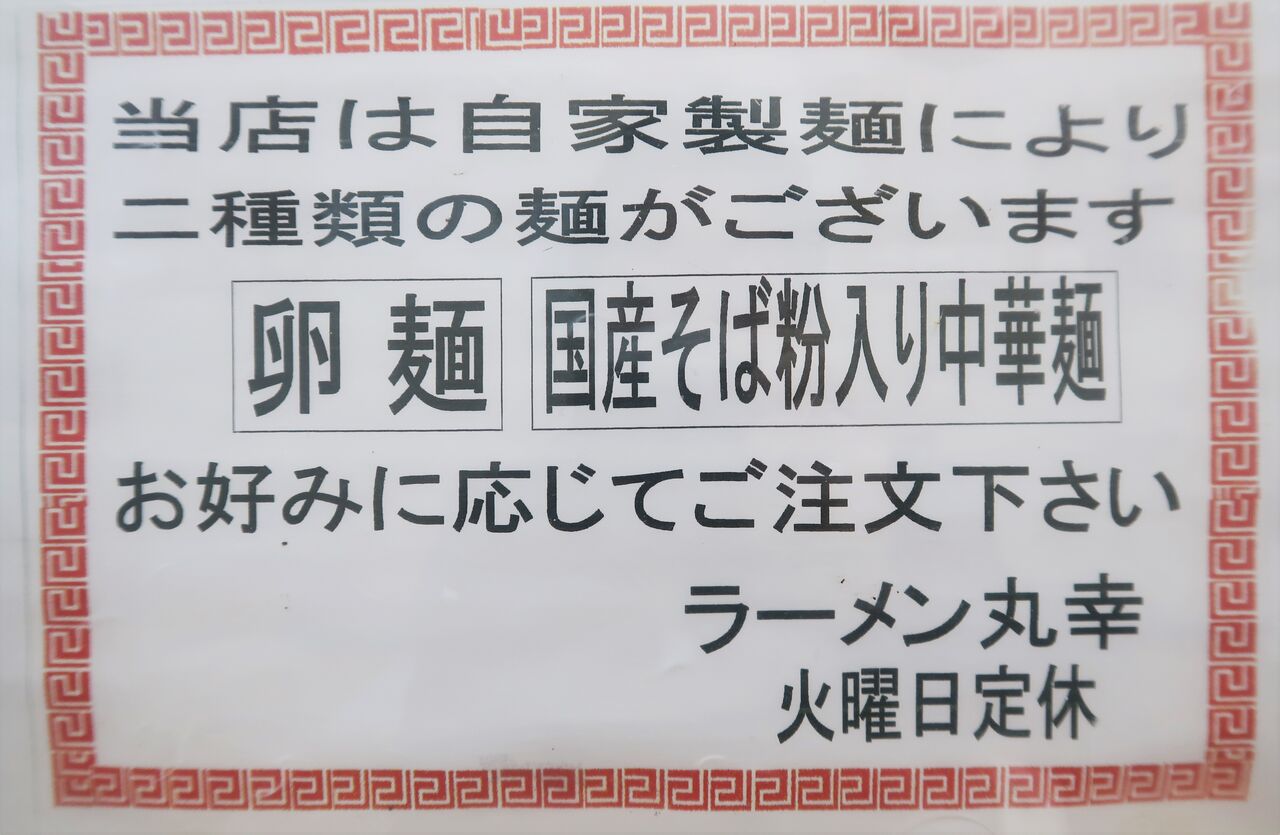 当店は自家製麺により
二種類の麺がございます
卵麺 国産そば粉入り中華麺
お好みに応じてご注文下さい
ラーメン丸幸
火曜日定休